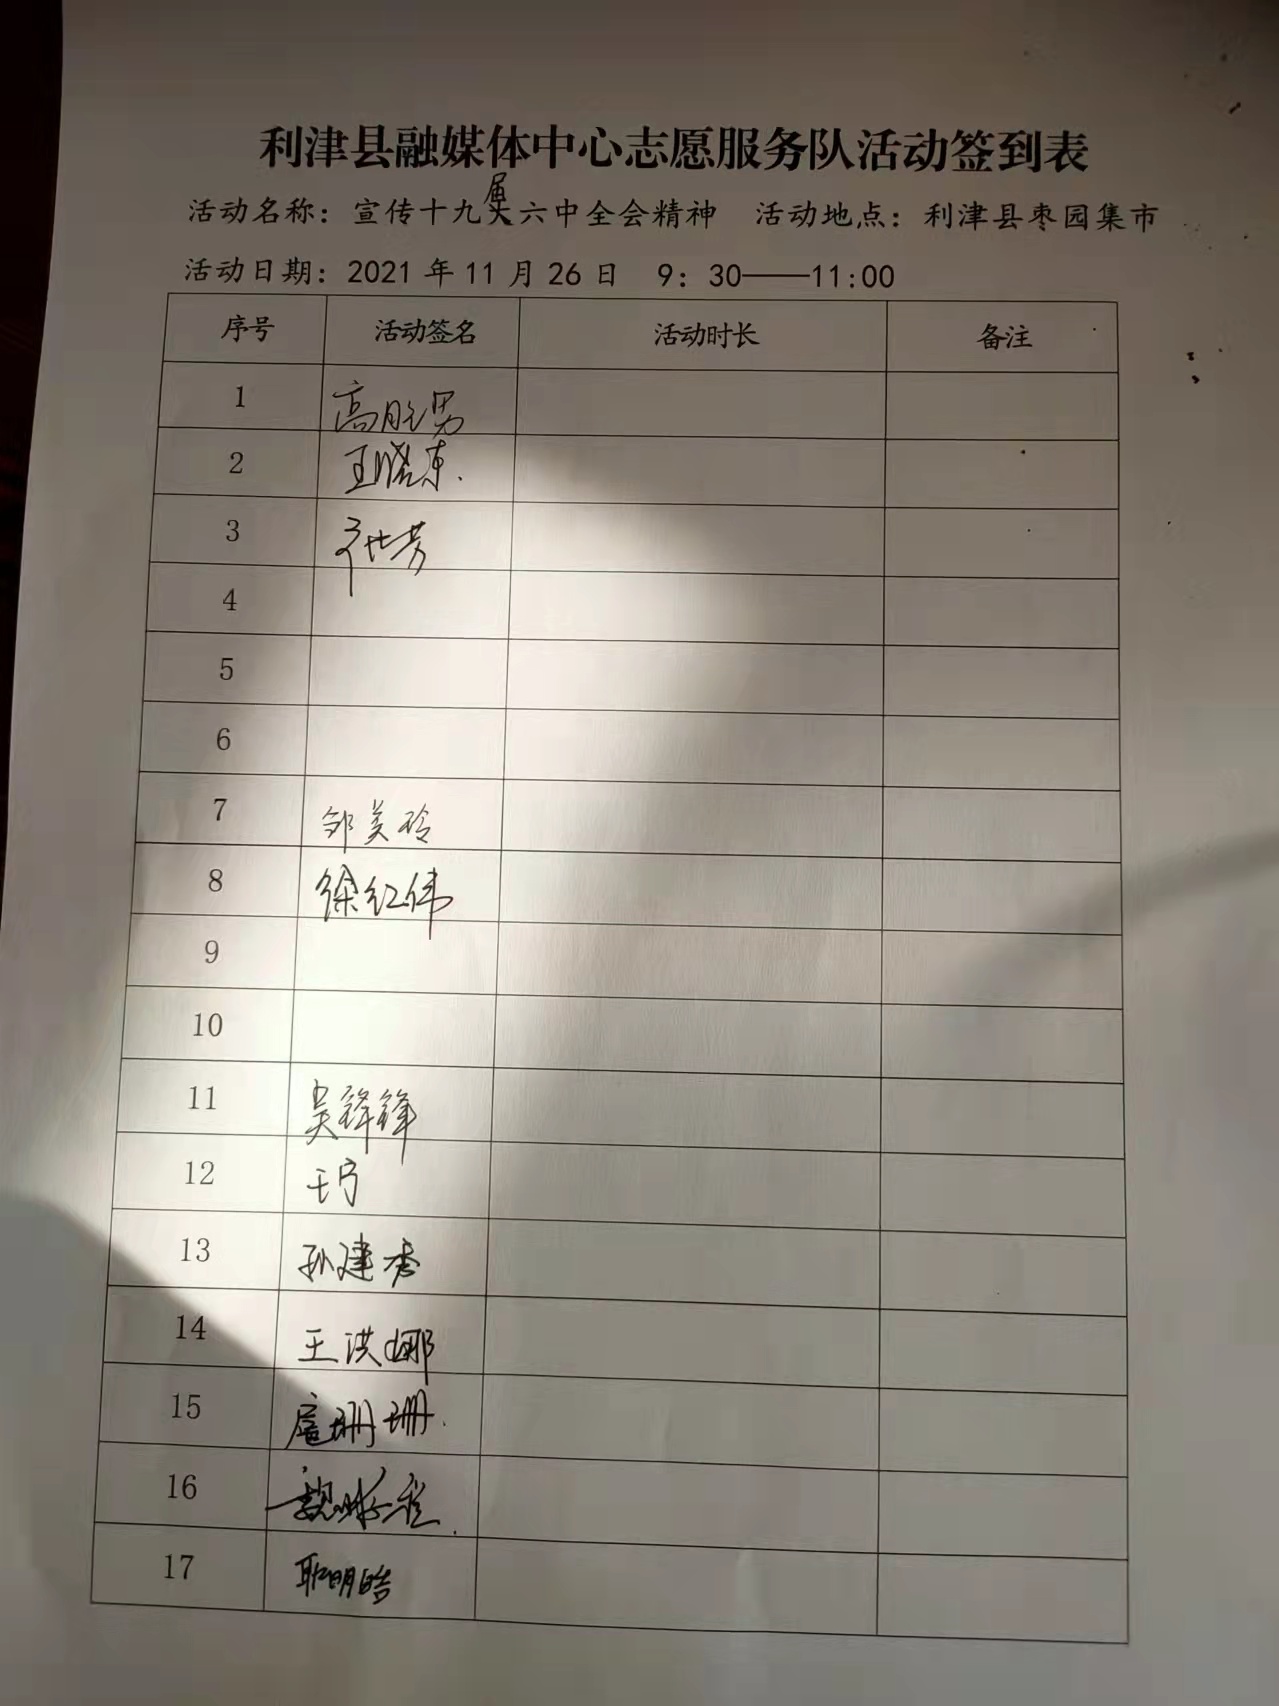 利津县融媒体中心志愿服务队活动签到表
届
活动名称：宣传十九大六中全会精神 活动地点：利津县枣园集市
活动日期：2021 年 11 月 26 日 9：30——11:00
序号 活动签名 活动时长 备注
1 高胜男
2 王晓东
3
4
5
6
7 邹美玲
8 徐红伟
9
10
11 吴锋锋
12 王宁
13 孙建秀
14 王洪娜
15 扈珊珊
16
17 耿明皓